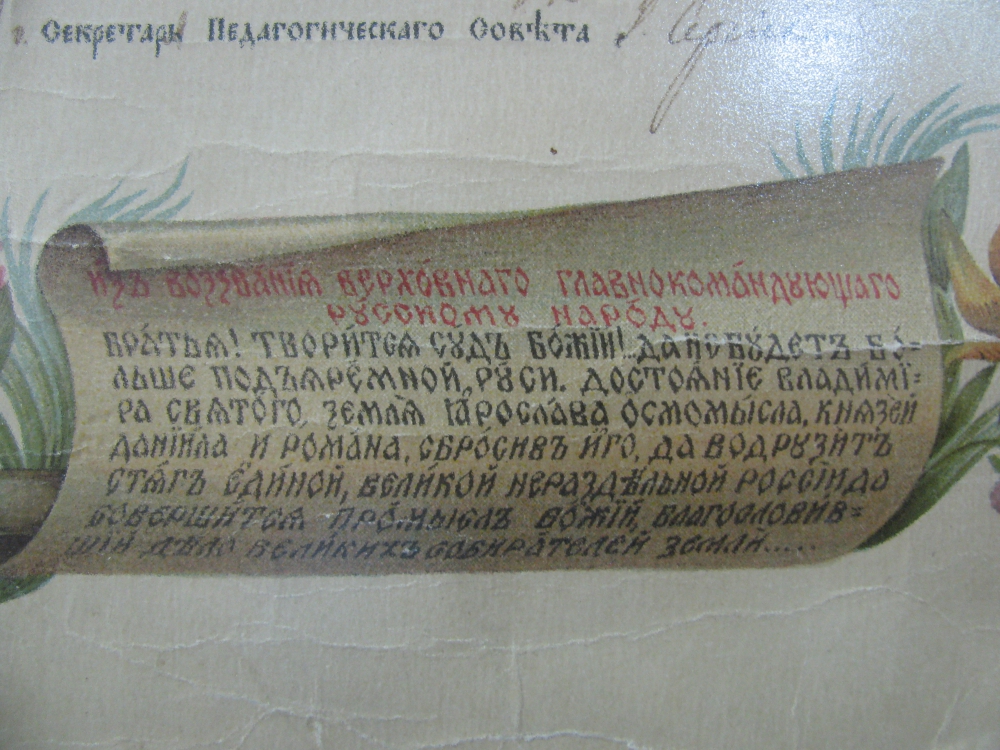 Секретарь Педагогическаго Совѣта
Изъ воззванія верхо́внаго главнокома́ндующаго
ру́сскому наро́ду.
Бра́тья! Твори́тся судъ Бо́жій! да не бу́детъ бо́-
льше подъяре́мной Руси. Достоя́ніе Влади́мі-
ра свято́го, земля́ Яросла́ва О́смомы́сла, князе́й
Дании́ла и Рома́на, сбро́сивъ и́го, да водрузи́тъ
стя́гъ еди́ной, вели́кой нераздѣ́льной Россі́и да
соверши́тся про́мыслъ Бо́жій, благослови́в-
шій дѣ́ло вели́кихъ собира́телей земли́.....